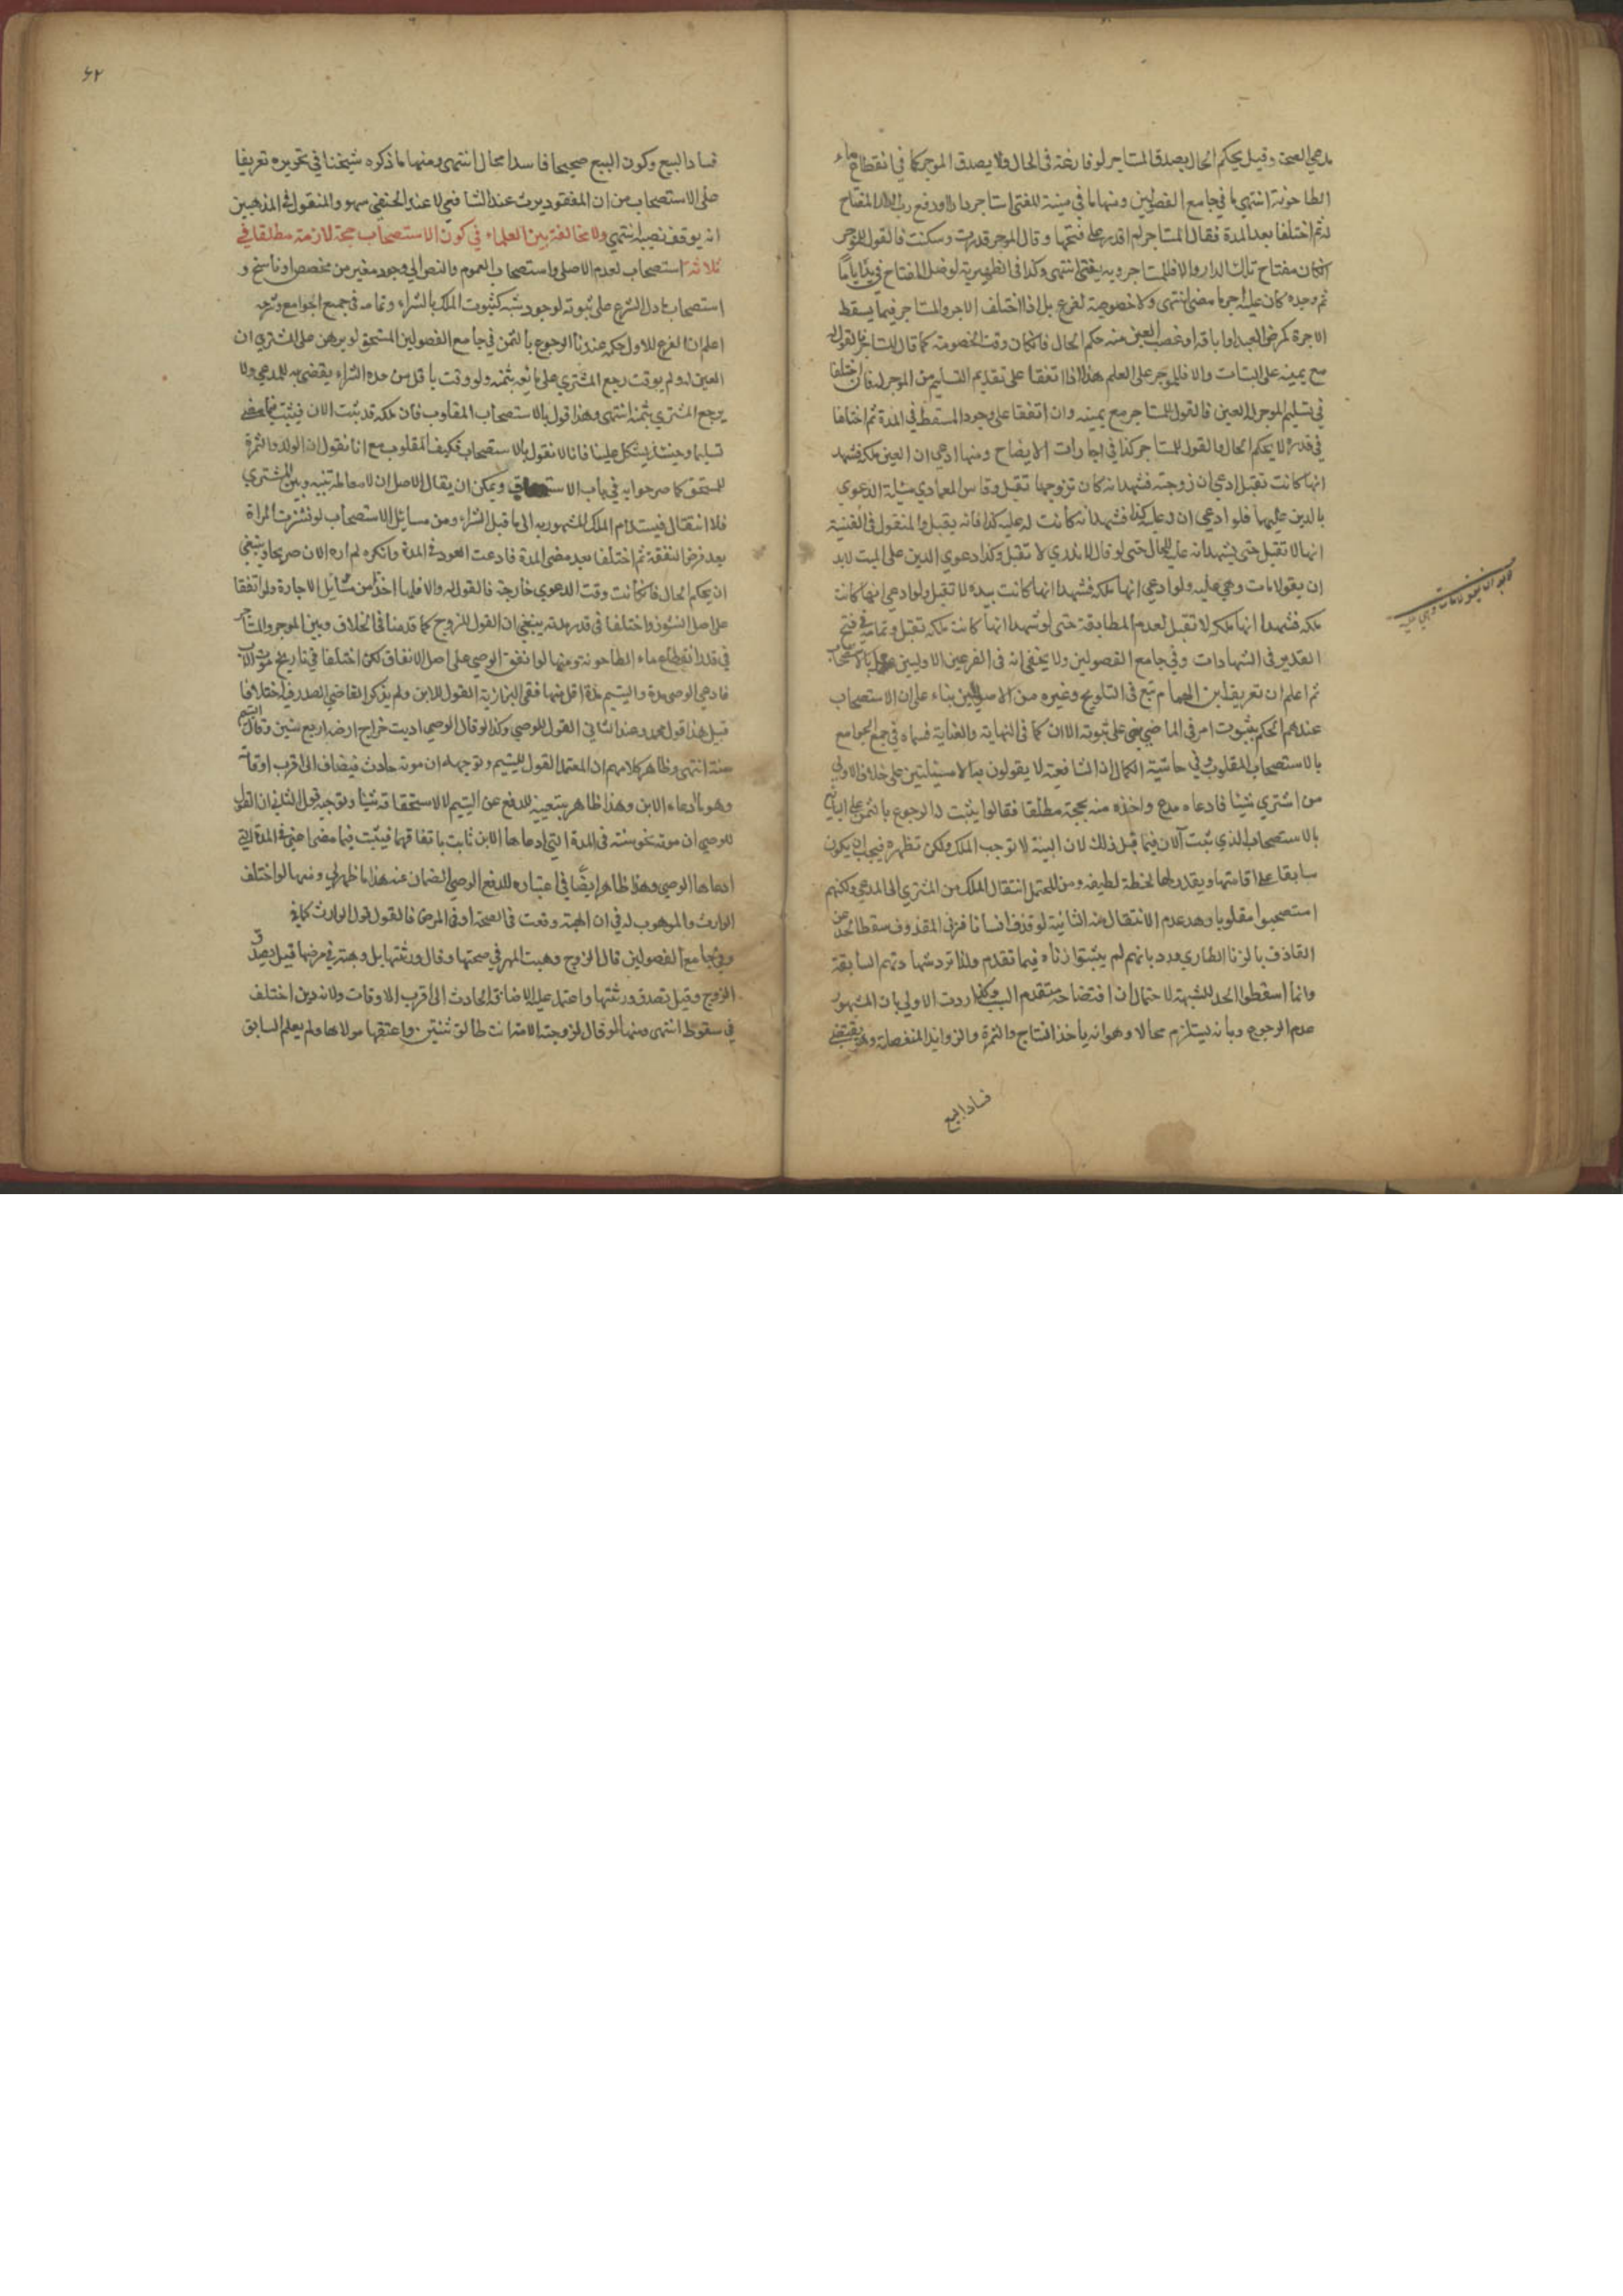 مدعي الصحة وقيل يحكم الحال يصدق المستاجر لو فارغة في الحال ولا يصدق الموجر كما في انقطاع ماء
الطاحونة انتهى ما في جامع الفصولين ومنها ما في منية المفتي استاجر دارا ودفع رب الدار المفتاح
له ثم اختلفا بعد المدة فقال المستاجر لم اقدر على فتحها وقال الموجر قدرت وسكنت فالقول للموجر
انكان مفتاح تلك الدار والا فللمستاجر وبه يفتي انتهى وكذا في الظهيرية لو ضل المفتاح في يده اياما
ثم وجده كان عليه اجر ما مضى انتهى ولا خصوصية لفرع بل اذا اختلف الاجر والمستاجر فيما يسقط
الاجرة كمرض العبد او اباقه او غصب العين منه حكم الحال فانكان وقت الخصومة كما قال المستاجر فالقول له
مع يمينه على البتات والا فللموجر على العلم هذا اذا اتفقا على تقديم التسليم من الموجر له فان اختلفا
في تسليم الموجر له العين فالقول للمستاجر مع يمينه وان اتفقا على وجود المسقط في المدة ثم اختلفا
في قدره لا يحكم الحال والقول للمستاجر كذا في اجارات الايضاح ومنها ادعى ان العين ملكه فشهد
انها كانت تقبل ادعى ان زوجته فشهد انه كان تزوجها تقبل وقاس العمادي مسئلة الدعوي
بالدين عليها فلو ادعى ان له عليه كذا فشهد انه كانت له عليه كذا فانه يقبل والمنقول في القنية
انها لا تقبل حتى يشهد انه عليه للحال حتى لو قال لا ندري لا تقبل وكذا دعوي الدين على الميت لابد
ان يقولا مات وهي عليه ولو ادعى انها ملكه فشهدا انها كانت بيده لا تقبل ولو ادعى انها كانت
ملكه فشهدا انها ملكه لا تقبل لعدم المطابقة حتى لو شهدا انها كانت ملكه تقبل وتمامه في فتح
القدير في الشهادات وفي جامع الفصولين ولا يخفى انه في الفرعين الاوليين عمل بالاستصحاب
ثم اعلم ان تعريف ابن الهمام تبع في التلويح وغيره من الاصوليين بناء على ان الاستصحاب
عندهم الحكم بثبوت امر في الماضي بنى على ثبوته الان كما في النهاية والعناية فسماه في جمع الجوامع
بالاستصحاب المقلوب وفي حاشية الكمال ان الشافعية لا يقولون به الا مسئلتين على خلاف الاولى
من اشتري شيئا فادعاه مدع واخذه منه بحجة مطلقا فقالوا يثبت له الرجوع بالثمن على البائع
بالاستصحاب الذي ثبت الان فيما قبل ذلك لان البينة لا توجب الملك ولكن تظهره فيجب ان يكون
سابقا على اقامتها ويقدر لها لحظة لطيفة ومن المحتمل انتقال الملك من المشتري الى المدعي ولكنهم
استصحبوا مقلوبا وهو عدم الانتقال منه الثانية لو قذف انسانا فزنى المقذوف سقط الحد عن
القاذف بالزنا الطاري ورد بانهم لم يثبتوا زناه فيما تقدم ولذا ترد شهادتهم السابقة
وانما اسقطوا الحد للشبهة لاحتمال ان افتضاحه متقدم السبب وكذا ردت الاولى بان المشهور
عدم الرجوع وبانه يستلزم محالا وهو انه ياخذ النتاج والثمرة والزوايد المنفصلة وهو يقتضي
فساد البيع
لابد ان يقولا مات وهي عليه
٦٢
فساد البيع وكون البيع صحيحا فاسدا محال انتهى ومنها ما ذكره شيخنا في تحريره تعريفا
على الاستصحاب من ان المفقود يرث عند الشافعي لا عند الحنفي سهو والمنقول في المذهبين
انه يوقف نصيبه انتهى ولا مخالفة بين العلماء في كون الاستصحاب حجة لازمة مطلقا في
ثلاثة استصحاب لعدم الاصلي واستصحاب العموم والنص الى وجود مغير من مخصص او ناسخ و
استصحاب ما دل الشرع على ثبوته لوجود سببه كثبوت الملك بالشراء وتمامه في جميع الجوامع وشرحه
اعلم ان الفرع للاول حكمه عندنا الرجوع بالثمن في جامع الفصولين المستحق لو برهن على المشتري ان
العين له ولم يوقت رجع المشتري على بائعه بثمنه ولو وقت باقل من مدة الشراء يقضى به للمدعي ولا
يرجع المشتري بثمنه انتهى وهذا قول بالاستصحاب المقلوب فان ملكه قد ثبت الان فيثبت فيما مضى
تسليما وحينئذ يشكل علينا فانا لا نقول بالاستصحاب فكيف المقلوب مع انا نقول ان الولد والثمرة
للمستحق كما صرحوا به في باب الاستحقاق ويمكن ان يقال الاصل ان لا معاملة بينه وبين المشتري
فلا انتقال فيستدام الملك المشهود به الى ما قبل الشراء ومن مسايل الاستصحاب لو نشزت المراة
بعد فرض النفقة ثم اختلفا بعد مضي المدة فادعت العود في المدة وانكره لم اره الان صريحا وينبغي
ان يحكم الحال فان كانت وقت الدعوي خارجة فالقول له والا فلها اخذا من مسايل الاجارة ولو اتفقا
على اصل النشوز واختلفا في قدر مدته ينبغي ان القول للزوج كما قدمنا في الخلاف وبين الموجر والمستاجر
في قدر انقطاع ماء الطاحونة ومنها لو انفق الوصي على اصل الانفاق لكن اختلفا في تاريخ موت الاب
فادعى الوصي مدة واليتيم مدة اقل منها ففي البزازية القول للابن ولم يذكر القاضي الصدر فيه اختلافا
قيل هذا قول محمد وعند الثاني القول للوصي وكذا لو قال الوصي اديت خراج ارضه اربع سنين وقال اليتيم
سنة انتهى وظاهر كلامهم ان المعتمد القول لليتيم وتوجيهه ان موته حادث فيضاف الى اقرب اوقاته
وهو ما ادعاه الابن وهذا ظاهر بتعيينه للدفع عن اليتيم لا لاستحقاقه شيئا وتوجيه قول الثاني ان القول
للوصي ان موته نحو سنة في المدة التي ادعاها الابن ثابت باتفاقهما فيثبت فيما مضى اعني في المدة التي
ادعاها الوصي وهذا ظاهر ايضا في اعتباره للدفع الوصي الضمان عنه هذا ما ظهر لي ومنها لو اختلف
الوارث والموهوب له في ان الهبة وقعت في الصحة او في المرض فالقول قول الوارث كما في
وفي جامع الفصولين قال الزوج وهبت المهر في صحتها وقال ورثتها بل وهبته في مرضها قيل يصدق
الزوج وقيل تصدق ورثتها واعتمد عليه لاضافة الحادث الى اقرب الاوقات ولانه دين اختلف
في سقوطه انتهى ومنها لو قال لزوجته الامة انت طالق ثنتين واعتقها مولاها ولم يعلم السابق